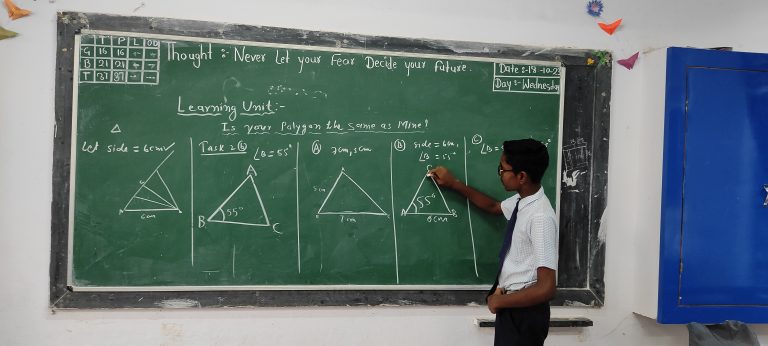 T P L OD
G 16 16
B 21 21
T 37 37
Thought :- Never Let your Fear Decide your future.
Date :- 18-10-23
Day :- Wednesday
Learning Unit :-
Is your Polygon the same as Mine?
Let side = 6cm
A
6cm
Task 2 (b)
∠B = 55°
A
B 55°
C
(A) 7cm, 5cm
5cm
7cm
(B) side = 6cm,
∠B = 55°
C
55°
A
B
6cm
(C)